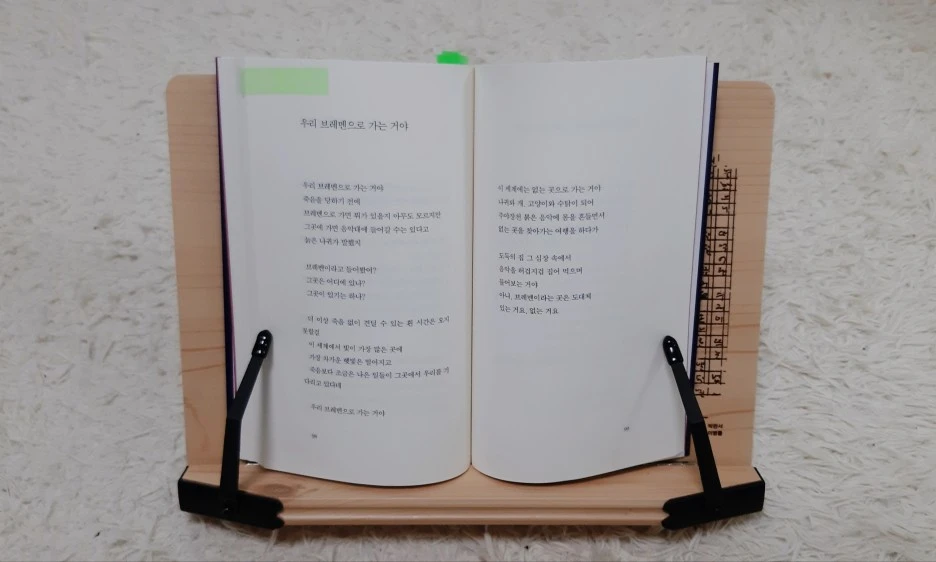 우리 브레멘으로 가는 거야
우리 브레멘으로 가는 거야
죽음을 당하기 전에
브레멘으로 가면 뭐가 있을지 아무도 모르지만
그곳에 가면 음악대에 들어갈 수는 있다고
늙은 나귀가 말했지
브레멘이라고 들어봤어?
그곳은 어디에 있나?
그곳이 있기는 하나?
더 이상 죽음 없이 견딜 수 있는 흰 시간은 오지
못할걸
이 세계에서 빛이 가장 많은 곳에
가장 차가운 햇빛은 떨어지고
죽음보다 조금은 나은 일들이 그곳에서 우리를 기
다리고 있다네
우리 브레멘으로 가는 거야
이 세계에는 없는 곳으로 가는 거야
나귀와 개, 고양이와 수탉이 되어
붉은 음악에 몸을 흔들면서
없는 곳을 찾아가는 여행을 하다가
도둑의 집 그 심장 속에서
음악을 허겁지겁 집어 먹으며
물어보는 거야
아니, 브레멘이라는 곳은 도대체
있는 거요, 없는 거요